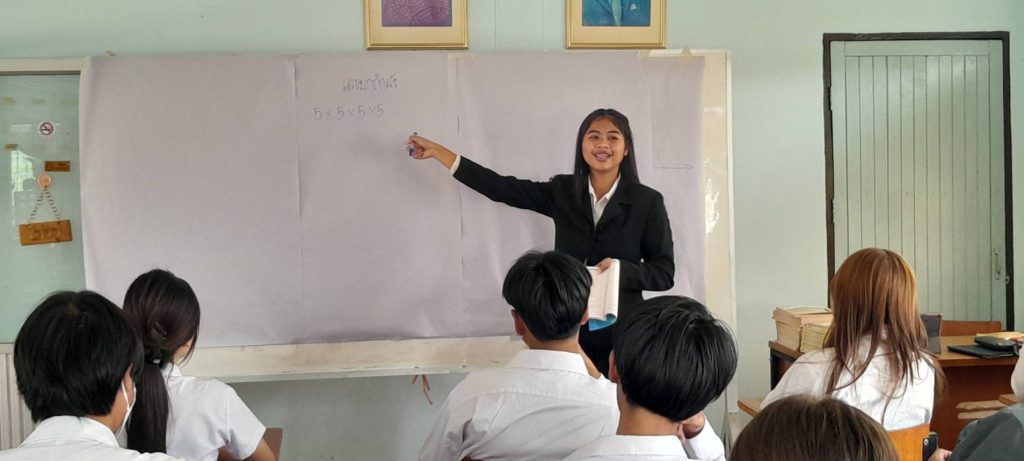 เลขยกกำลัง
5 × 5 × 5 × 5